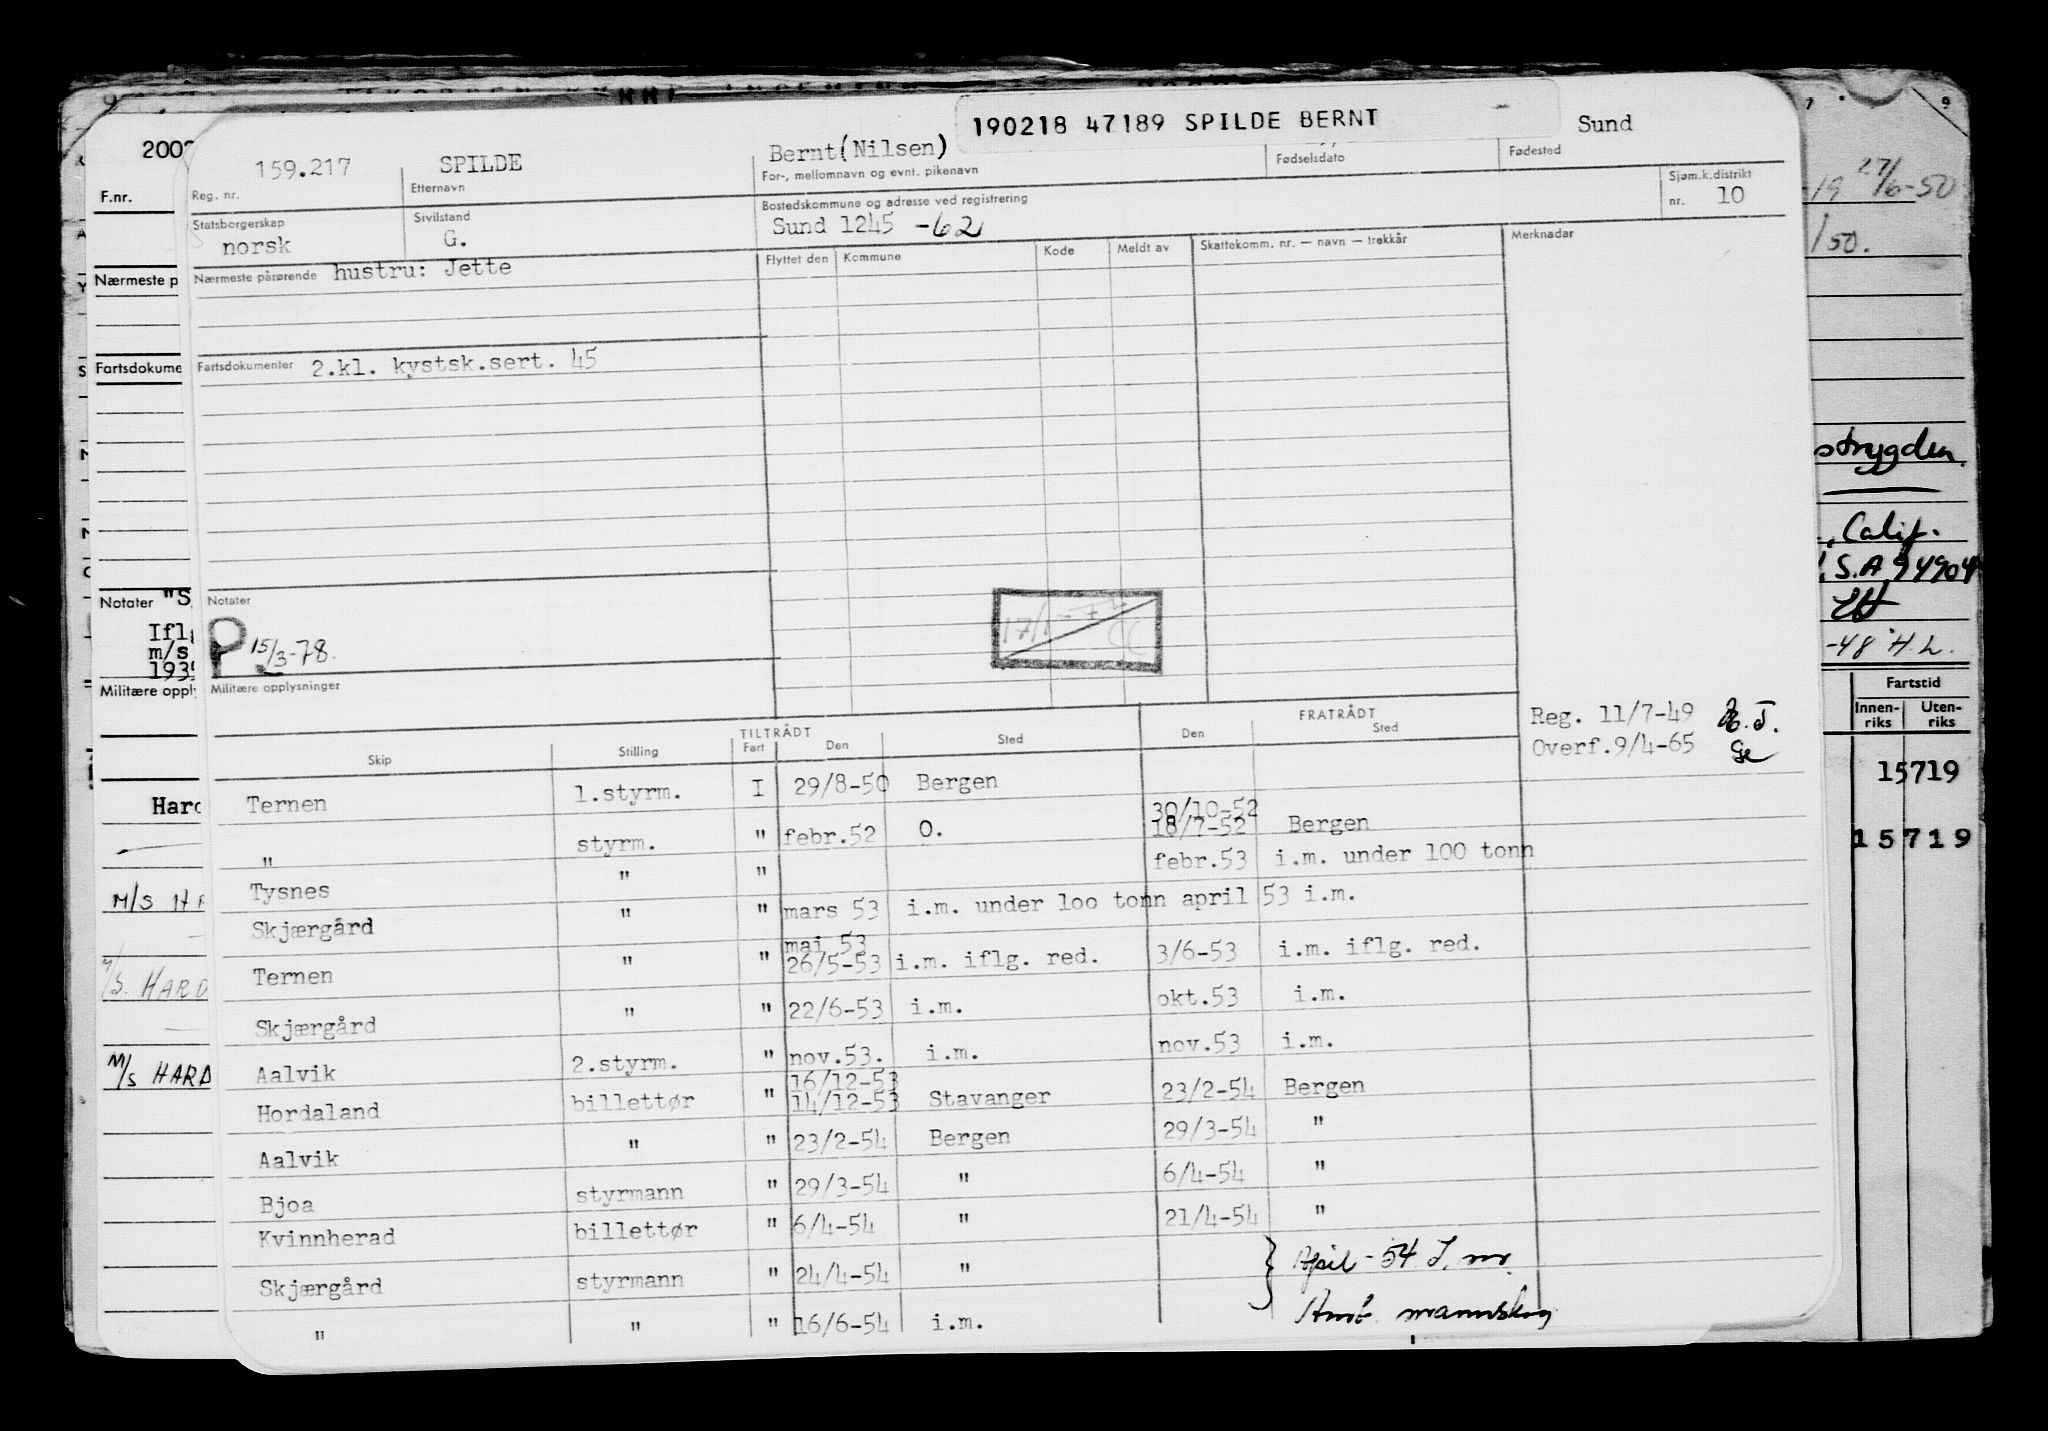 190218 47189 SPILDE BERNT
159.217 SPILDE Bernt(Nilsen) Sund
Reg. nr. Etternavn For-, mellomnavn og evnt. pikenavn Fødselsdato Fødested
Statsborgerskap Sivilstand Bostedskommune og adresse ved registrering Sjøm.k.distrikt
norsk G. Sund 1245 -62 nr. 10
Nærmeste pårørende hustru: Jette
Flyttet den Kommune Kode Meldt av Skattekomm. nr. — navn — trekkår Merknader
Fartsdokumenter 2.kl. kystsk.sert. 45
Notater
P 15/3-78.
17/1-77
Militære opplysninger
Reg. 11/7-49
Overf.9/4-65
TILTRÅDT FRATRÅDT
Skip Stilling Fart Den Sted Den Sted
Ternen 1.styrm. I 29/8-50 Bergen 30/10-52
" styrm. " febr.52 O. 18/7-52 Bergen
Tysnes " " febr.53 i.m. under 100 tonn
Skjærgård " " mars 53 i.m. under loo tonn april 53 i.m.
mai 53
Ternen " " 26/5-53 i.m. iflg. red. 3/6-53 i.m. iflg. red.
Skjærgård " " 22/6-53 i.m. okt.53 i.m.
Aalvik 2.styrm. " nov.53. i.m. nov.53 i.m.
16/12-53
Hordaland billettør " 14/12-53 Stavanger 23/2-54 Bergen
Aalvik " " 23/2-54 Bergen 29/3-54 "
Bjoa styrmann " 29/3-54 " 6/4-54 "
Kvinnherad billettør " 6/4-54 " 21/4-54 "
Skjærgård styrmann " 24/4-54 " April-54 I.m.
" " " 16/6-54 i.m.
F.nr.
2002
Nærmeste p
Fartsdokume
Notater "S
Ifl
m/s
193
Militære oppl
Hard
M/S HA
M/S. HARD
M/S HARD
-19 27/6-50
/50.
strygden.
, Calif.
S.A 94904
-48 H.L.
Fartstid
Innen-riks Uten-riks
15719
15719